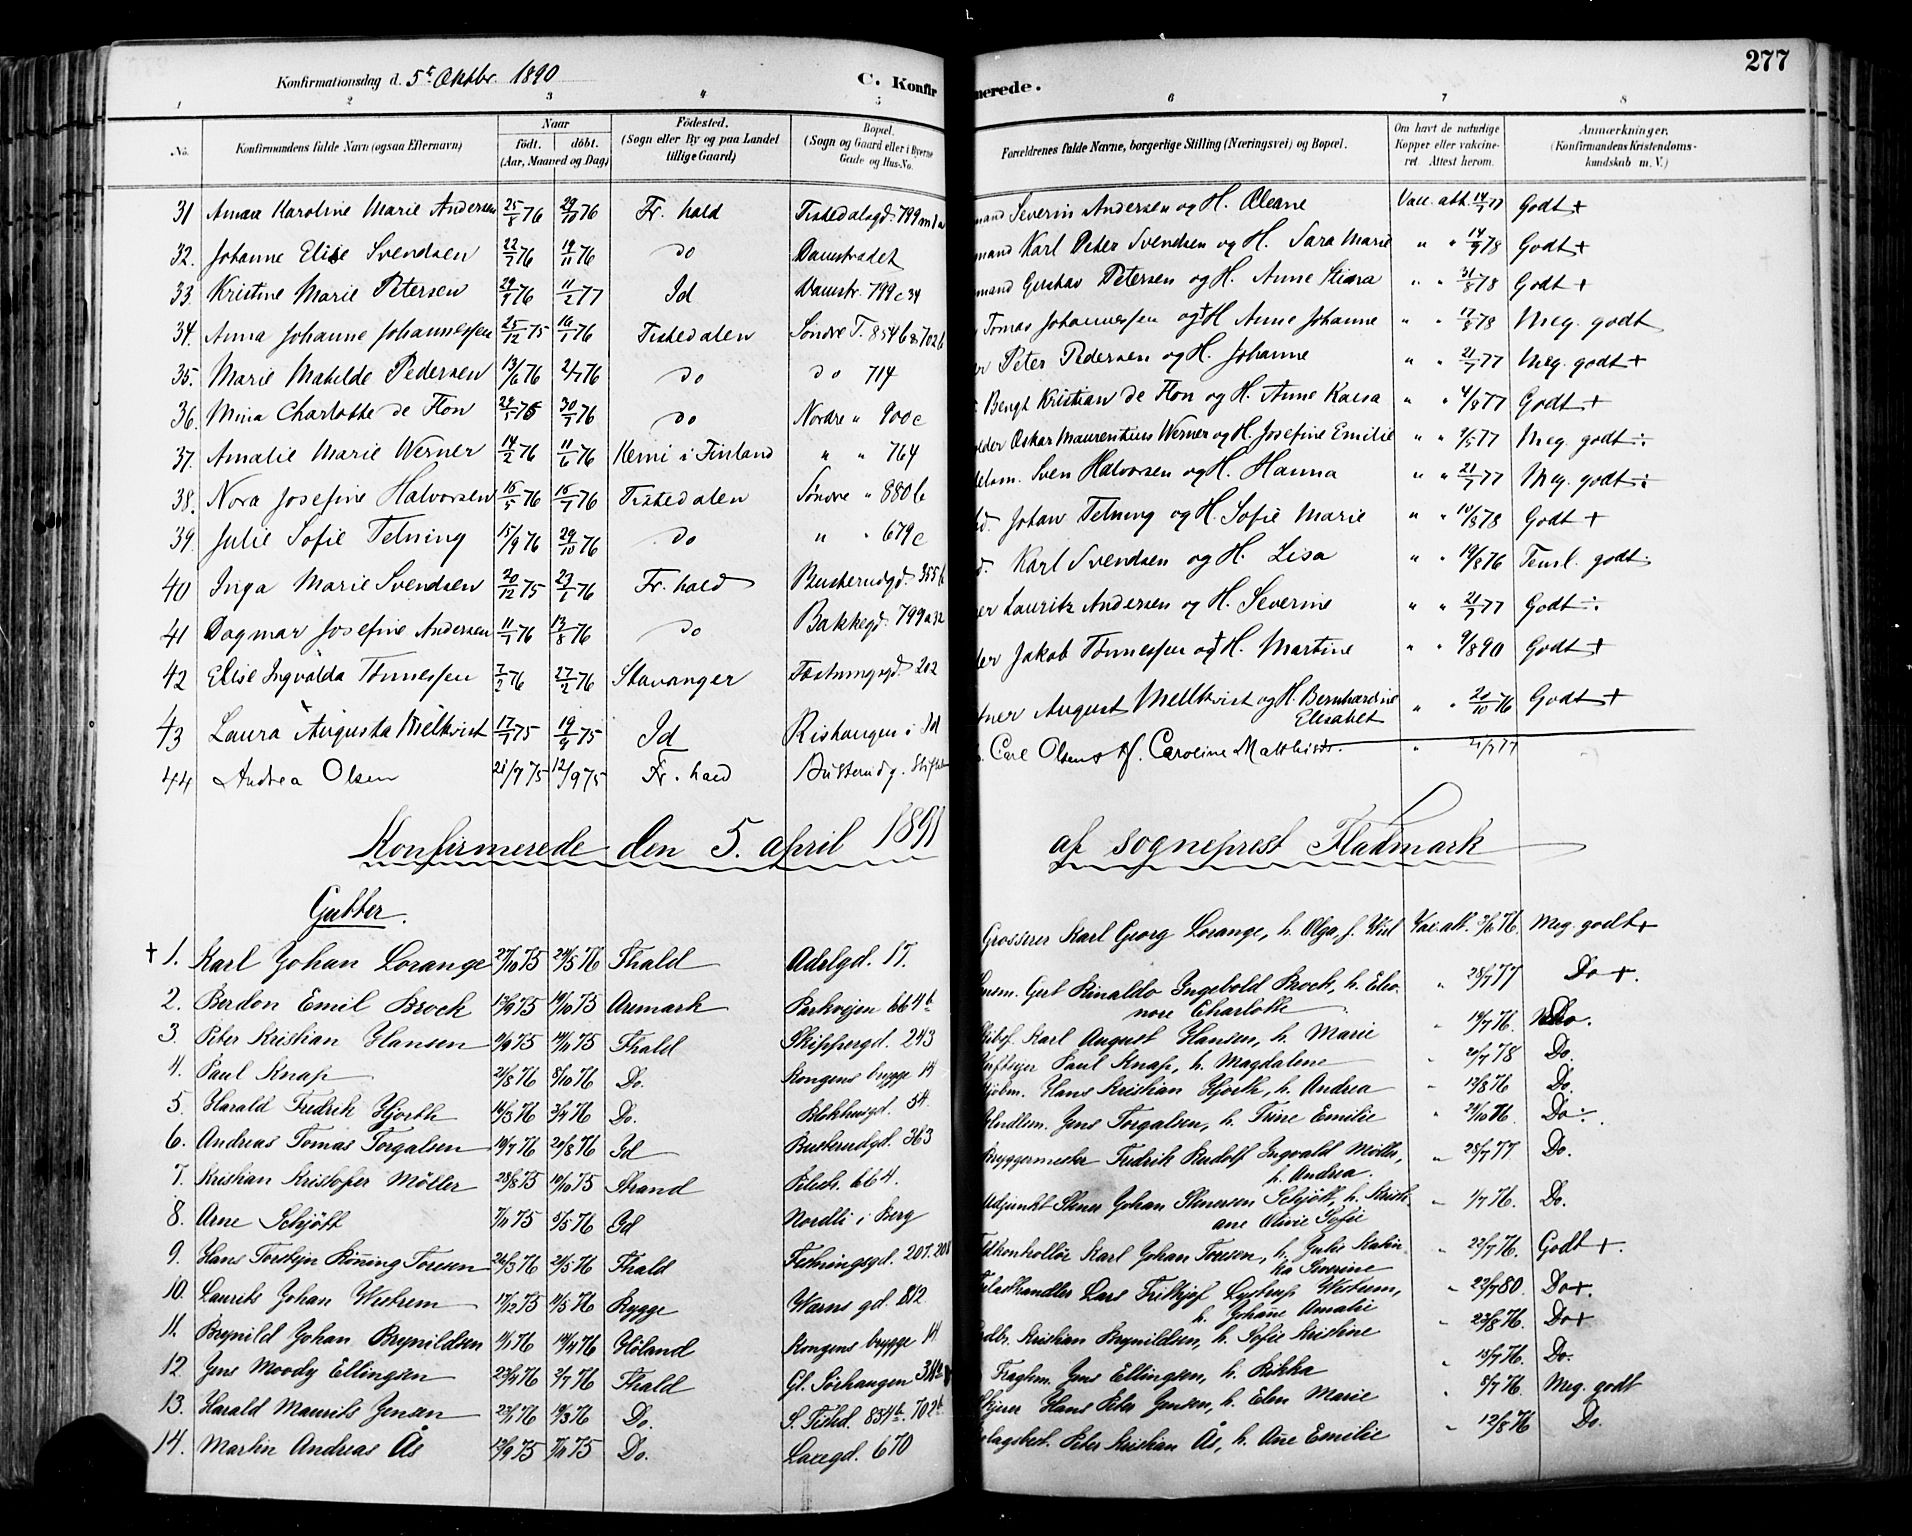 277
Konfirmationsdag d. 5t Oktbr. 1890
C. Konfirmerede.
1 2 3 4 5 6 7 8
No. Konfirmandens fulde Navn (ogsaa Efternavn) Naar født. døbt. (Aar, Maaned og Dag) Födested. (Sogn eller By og paa Landet tillige Gaard) Bopæl. (Sogn og Gaard eller i Byerne Gade og Hus-No. Forældrenes fulde Navne, borgerlige Stilling (Næringsvei) og Bopæl. Om havt de naturlige Kopper eller vakcineret Attest herom. Anmærkninger. (Konfirmandens Kristendomskundskab m. V.)
31 Karoline Marie Andersen 25/8 76 29/10 76 Fr. hald Tistedalsgd. 799 Severin Andersen og H. Oleane Vacc. att. 14/7 77 Godt +
32. Johanne Elise Svendsen 22/7 76 19/11 76 Do Damstrædet Karl Peter Svendsen og H. Sara Marie " " 14/9 78 Godt +
33 Kristine Marie Petersen 29/9 76 11/2 77 Id Damstr. 799 c 34 Gustav Petersen og H. Anne " " 31/8 78 Godt +
34. Anna Johanne Johannessen 25/12 75 16/1 76 Tistedalen Søndre T. 854 b & 702 b Tomas Johannessen og † H Anne Johanne " " 17/8 78 Meg. godt
35. Marie Matilde Pedersen 13/6 76 2/7 76 Do Do 714 Peter Pedersen og H. Johanne " " 21/7 77 Meg. godt +
36. Mina Charlotte de Flon 30/7 76 Do Nordre " 900 c Bengt Kristian de Flon og H. Anne Kaisa " " 4/8 77 Godt +
37. Amalie Marie Werner 14/2 76 11/6 76 Kemi i Finland " " 764 Oskar Maurentius Werner og H. Josefine Emilie " " 77 Meg. godt ÷
38. Nora Josefine Halvorsen 16/5 76 16/7 76 Tistedalen Søndre " 880 b Sven Halvorsen og H. Hanna " " 21/7 77 Meg. godt ÷
39. Julie Sofie Tetning 15/9 76 29/10 76 Do " " 679 c Johan Tetning og H. Sofie Marie " " 10/8 78 Godt +
40 Inga Marie Svendsen 20/12 75 23/1 76 Fr. hald Busterudgd. 355 b Karl Svendsen og H. Lisa " " 19/8 76 Teml. godt
41 Dagmar Josefine Andersen 11/7 76 13/8 76 Do Bakkegd. 799 a 32 Lauritz Andersen og H. Severine " " 21/7 77 Godt ÷
42 Elise Ingvalda Tønnessen 7/2 76 27/2 76 Stavanger Fæstningsgd. 202 Jakob Tønnessen og † H. Martine " " 9/8 90 Godt +
43 Laura Augusta Mellkvist 17/7 75 19/9 75 Id Rishaugen i Id August Mellkvist og H. Bernhardine Elisabet " " 20/10 76 Godt +
44 Andrea Olsen 21/7 75 12/9 75 Fr. hald Busterudg. Carl Olsen & H. Caroline " 77
Konfirmerede den 5. april 1891 af sogneprest Fladmark
Gutter.
† 1. Karl Johan Lorange 27/10 75 24/5 76 Fhald Adelgd. 17. Grosserer Karl Georg Lorange, h. Olga, f. Wiel Vac. att. 3/6 76. Meg. godt +
2. Berdon Emil Brock 75 19/10 75 Aremark Parkvejen 664 b Gert Rinaldo Ingebold Brock, h. Eleonore Charlotte " 28/7 77 Do +.
3. Peter Kristian Hansen 75 75 Fhald Skippergd. 243 Karl August Hansen, h. Marie " 19/7 76. Do.
4. Paul Knap 21/8 76 8/10 76 Do. Kongens brygge 14 Paul Knap, h. Magdalene " 20/7 78 Do.
5. Harald Fredrik Hjorth 16/3 76 2/4 76 Do. Blokhusgd. 54. Hans Kristian Hjorth, h. Andrea " 12/8 76 Do.
6. Andreas Tomas Torgalsen 19/7 76 20/8 76 Id Busterudgd. 363 Jens Torgalsen, h. Trine Emilie " 21/10 76. Do ÷.
7. Kristian Kristofer Möller 28/8 75 10/10 75 Strand Pelich. 664. Bryggermester Fredrik Rudolf Ingvald Möller, h. Andrea. " 28/7 77 Do.
8. Arne Schjött 7/11 75 5/5 76 Gd Nordli i Berg Adjunkt Stener Johan Stenersen Schjött, h. Kristiane Olivie Sofie " 1/7 76. Do.
9. Hans Torstejn Rönning Toresen 26/3 76 21/5 76 Fhald Festningsgd. 207. 208 Karl Johan Toresen, h. Julie Katinka Severine " 22/7 76. Godt +.
10. Laurits Johan Westrem 17/12 75 11/5 76 Rygge Warns gd. 812. Lars Fritkjof Lystrup Westrem, h. Johanne Amalie " 22/7 80. Do +.
11. Brynild Johan Brynildsen 11/1 76 14/4 76 Höland Kongens brygge 14. Kristian Brynildsen, h. Sofie Kristine " 23/8 76. Do +
12. Jens Moody Ellingsen 23/4 76 2/7 76 Fhald Gl. Sørhaugen Jens Ellingsen, h. Rikka " 15/7 76. Do.
13. Harald Maurits Jensen 22/1 76 19/3 76 Do. S. Tisted. 854 b. 702 b. Hans Peter Jensen, h. Elen Marie " 8/7 76. Meg. godt
14. Martin Andreas Ås 12/9 75 7/11 75 Do. Laxegd. 670 Peter Kristian Ås, h. Ane Emilie " 12/8 76 Do.